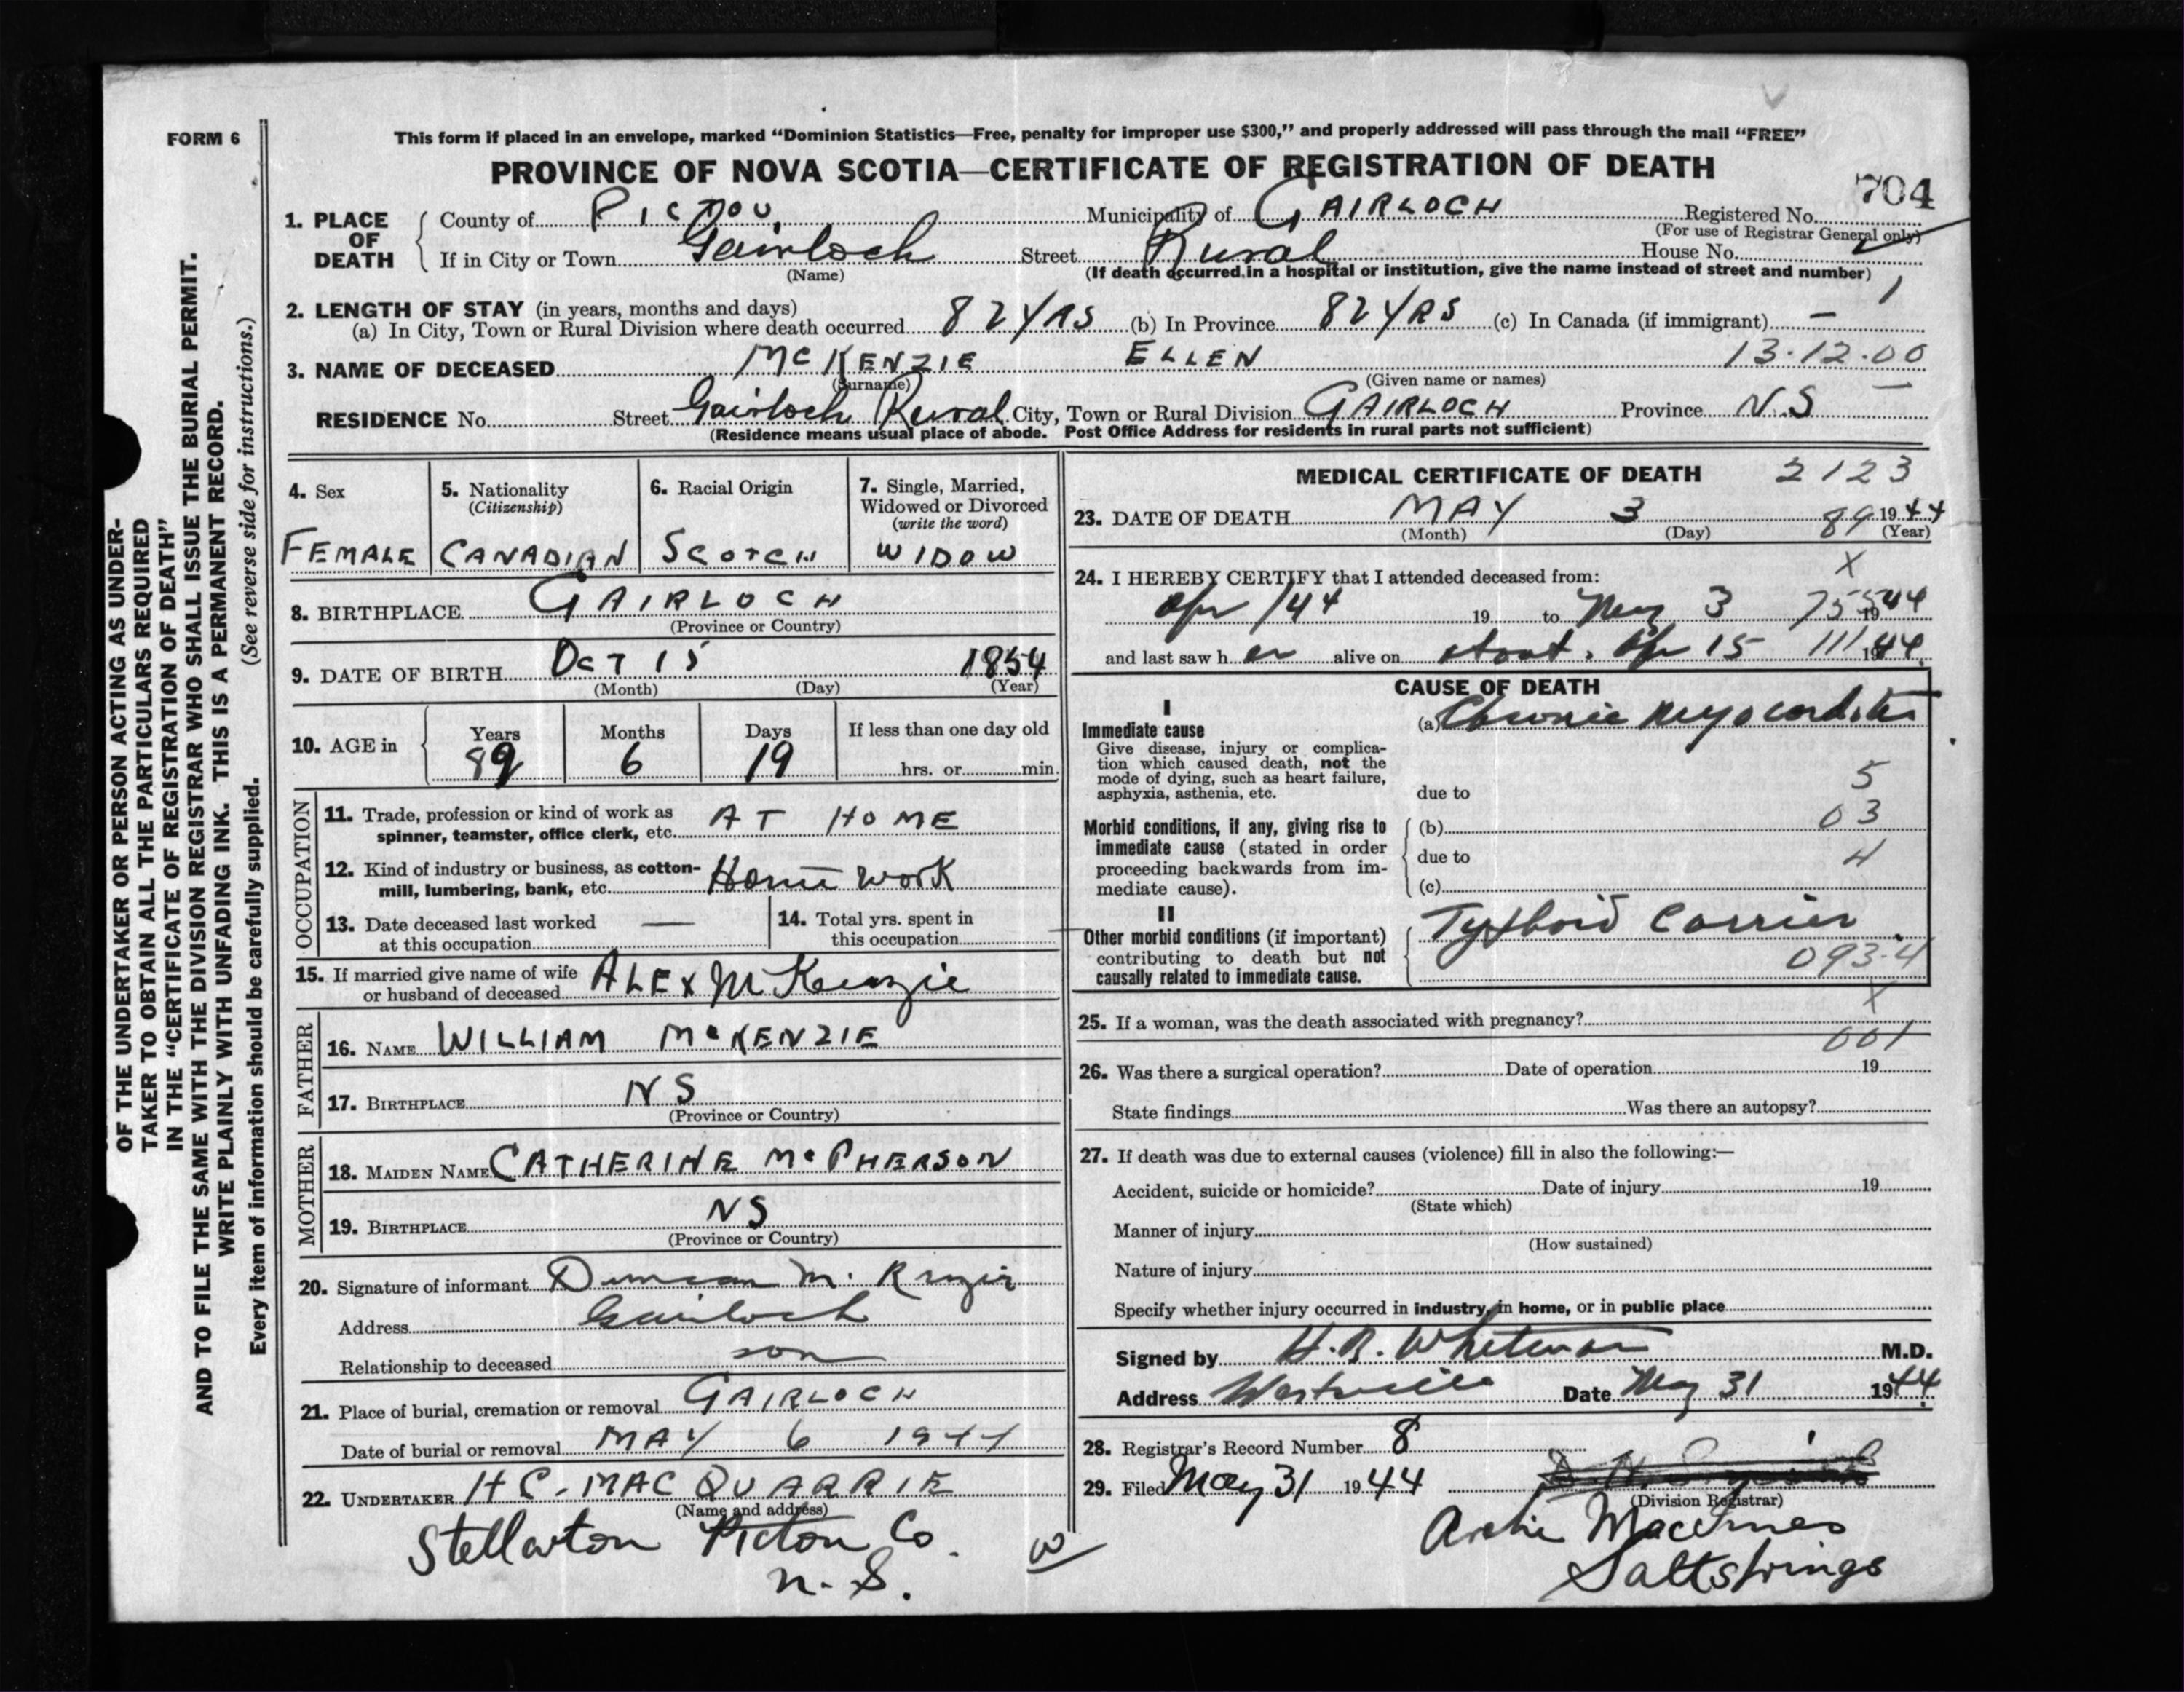 FORM 6
This form if placed in an envelope, marked "Dominion Statistics—Free, penalty for improper use $300," and properly addressed will pass through the mail "FREE"
PROVINCE OF NOVA SCOTIA—CERTIFICATE OF REGISTRATION OF DEATH
704
1. PLACE OF DEATH
County of PICTOU Municipality of GAIRLOCH Registered No.
(For use of Registrar General only)
If in City or Town Gairloch Street Rural House No.
(Name) (If death occurred in a hospital or institution, give the name instead of street and number)
1
2. LENGTH OF STAY (in years, months and days)
(a) In City, Town or Rural Division where death occurred 82 YRS (b) In Province 82 YRS (c) In Canada (if immigrant) —
3. NAME OF DECEASED MCKENZIE ELLEN 13·12·00
(Surname) (Given name or names)
RESIDENCE No. Street Gairloch Rural City, Town or Rural Division GAIRLOCH Province N.S
(Residence means usual place of abode. Post Office Address for residents in rural parts not sufficient)
OF THE UNDERTAKER OR PERSON ACTING AS UNDER-
TAKER TO OBTAIN ALL THE PARTICULARS REQUIRED
IN THE "CERTIFICATE OF REGISTRATION OF DEATH"
AND TO FILE THE SAME WITH THE DIVISION REGISTRAR WHO SHALL ISSUE THE BURIAL PERMIT.
WRITE PLAINLY WITH UNFADING INK. THIS IS A PERMANENT RECORD.
Every item of information should be carefully supplied. (See reverse side for instructions.)
4. Sex
FEMALE
5. Nationality
(Citizenship)
CANADIAN
6. Racial Origin
SCOTCH
7. Single, Married,
Widowed or Divorced
(write the word)
WIDOW
8. BIRTHPLACE GAIRLOCH
(Province or Country)
9. DATE OF BIRTH OCT 15 1854
(Month) (Day) (Year)
10. AGE in
Years Months Days If less than one day old
89 6 19 hrs. or min.
OCCUPATION
11. Trade, profession or kind of work as
spinner, teamster, office clerk, etc. AT HOME
12. Kind of industry or business, as cotton-
mill, lumbering, bank, etc. Home work
13. Date deceased last worked
at this occupation —
14. Total yrs. spent in
this occupation
15. If married give name of wife
or husband of deceased ALEX McKenzie
FATHER
16. NAME WILLIAM MCKENZIE
17. BIRTHPLACE NS
(Province or Country)
MOTHER
18. MAIDEN NAME CATHERINE McPHERSON
19. BIRTHPLACE NS
(Province or Country)
20. Signature of informant Duncan M. Kenzie
Address Gairloch
Relationship to deceased son
21. Place of burial, cremation or removal GAIRLOCH
Date of burial or removal MAY 6 1944
22. UNDERTAKER H C. MACQUARRIE
(Name and address)
Stellarton Pictou Co.
N. S.
MEDICAL CERTIFICATE OF DEATH 2123
23. DATE OF DEATH MAY 3 1944
(Month) (Day) 89 (Year)
X
24. I HEREBY CERTIFY that I attended deceased from:
Apr /44 19 to May 3 1944
and last saw her alive on about. Apr 15 1944
CAUSE OF DEATH
I
Immediate cause
Give disease, injury or complica-
tion which caused death, not the
mode of dying, such as heart failure,
asphyxia, asthenia, etc.
(a) Chronic Myocarditis
due to 5
Morbid conditions, if any, giving rise to
immediate cause (stated in order
proceeding backwards from im-
mediate cause).
(b) 03
due to 4
(c)
II
Other morbid conditions (if important)
contributing to death but not
causally related to immediate cause.
Typhoid Carrier
093-4
X
25. If a woman, was the death associated with pregnancy?
001
26. Was there a surgical operation? Date of operation 19
State findings Was there an autopsy?
27. If death was due to external causes (violence) fill in also the following:—
Accident, suicide or homicide? Date of injury 19
(State which)
Manner of injury
(How sustained)
Nature of injury
Specify whether injury occurred in industry, in home, or in public place
Signed by H. B. Whitman M.D.
Address Westville Date May 31 1944
28. Registrar's Record Number 8
29. Filed May 31 1944
(Division Registrar)
Archie MacInnes
Saltsprings